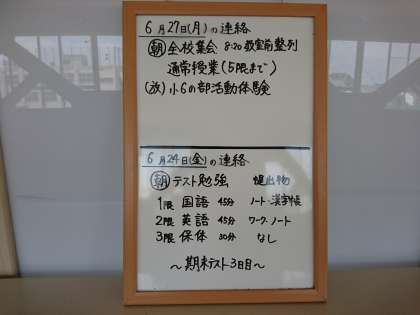 6月27日(月)の連絡
朝 全校集会 8:20 教室前整列
通常授業(5限まで)
(放)小6の部活動体験
6月24日(金)の連絡
朝 テスト勉強 提出物
1限 国語 45分 ノート・漢字帳
2限 英語 45分 ワーク・ノート
3限 保体 30分 なし
～期末テスト3日目～